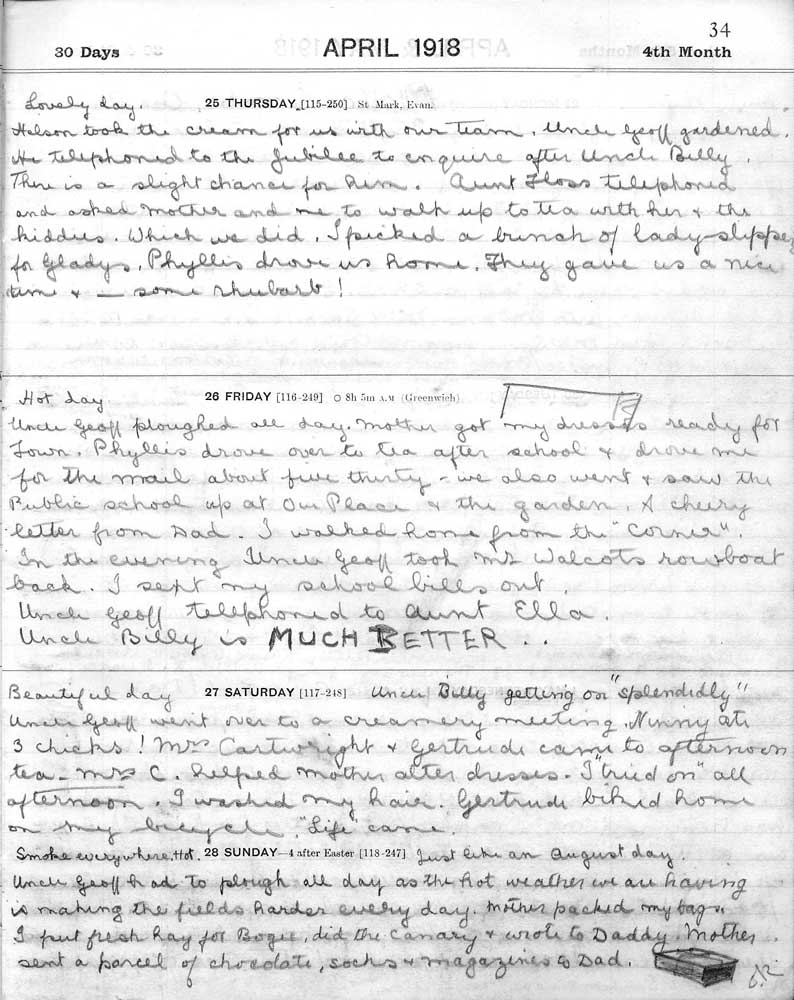 34
30 Days APRIL 1918 4th Month
Lovely day. 25 THURSDAY [115-250] St Mark, Evan.
Helson took the cream for us with our team. Uncle Geoff gardened.
He telephoned to the Jubilee to enquire after Uncle Billy.
There is a slight chance for him. Aunt Floss telephoned
and asked Mother and me to walk up to tea with her & the
kiddies. Which we did. I picked a bunch of lady-slipper
for Gladys. Phyllis drove us home. They gave us a nice
time & — some rhubarb!
Hot day. 26 FRIDAY [116-249] ○ 8h 5m A.M (Greenwich)
Uncle Geoff ploughed all day. Mother got my dresses ready for
Town. Phyllis drove over to tea after school & drove me
for the mail about five thirty - we also went & saw the
Public school up at Our Place & the garden. A cheery
letter from Dad. I walked home from the "Corner".
In the evening Uncle Geoff took Mr Walcots rowboat
back. I sent my school bills out.
Uncle Geoff telephoned to Aunt Ella.
Uncle Billy is MUCH BETTER . .
Beautiful day 27 SATURDAY [117-248] Uncle Billy getting on "splendidly"
Uncle Geoff went over to a creamery meeting. Ninny ate
3 chicks! Mrs Cartwright & Gertrude came to afternoon
tea - Mrs C. helped Mother alter dresses - I "tried on" all
afternoon. I washed my hair. Gertrude biked home
on my bicycle. "Life" came.
Smoke everywhere. Hot. 28 SUNDAY—4 after Easter [118-247] Just like an August day.
Uncle Geoff had to plough all day as the hot weather we are having
is making the fields harder every day. Mother packed my bags.
I put fresh hay for Bogie, did the Canary & wrote to Daddy. Mother
sent a parcel of chocolate, socks & magazines to Dad.